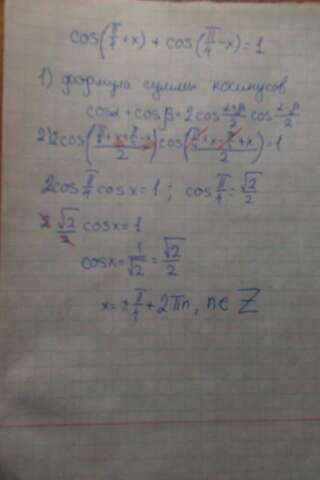 cos(π/4+x) + cos(π/4-x)=1
1) формула суммы косинусов
cosα+cosβ=2cos (α+β)/2 cos (α-β)/2
2) 2cos((π/4+x+π/4-x)/2) cos((π/4+x-π/4+x)/2)=1
2cos π/4 cos x=1 ; cos π/4 = √2/2
2 √2/2 cos x=1
cosx= 1/√2 = √2/2
x=± π/4 + 2πn, n∈Z